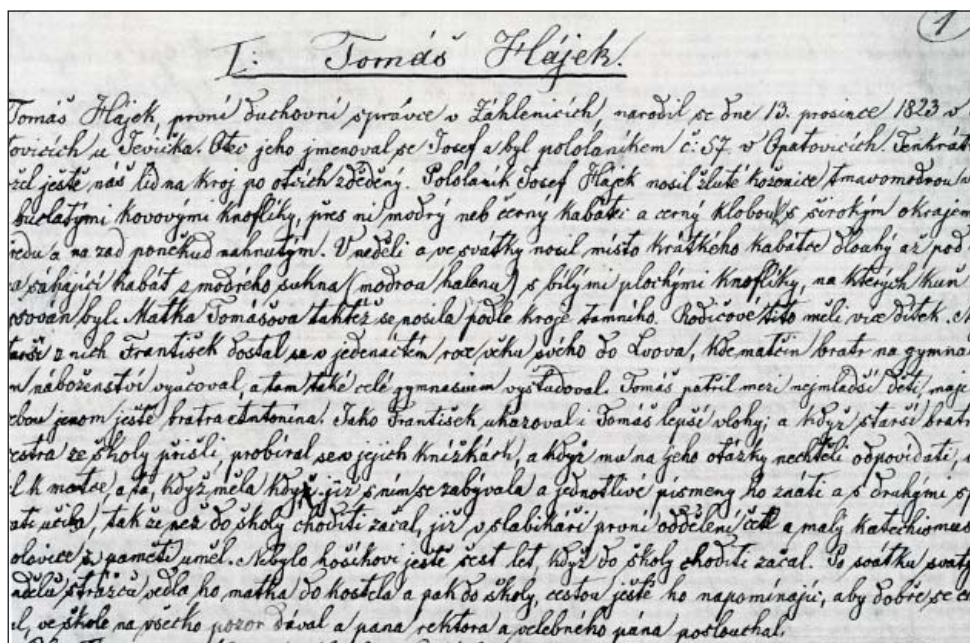 1
I. Tomáš Hájek.
Tomáš Hájek, první duchovní správce v Záhlenicích, narodil se dne 13. prosince 1823 v
tovicích u Jevíčka. Otec jeho jmenoval se Josef a byl pololáníkem č. 57. v Opatovicích. Tenkrát
žel ještě náš lid na kroj po otcích zděděný. Pololáník Josef Hájek nosil žluté koženice, tmavomodrou
buclatými kovovými knoflíky, přes ni modrý neb černý kabátec a černý klobouk s širokým okrajem
ředu a na zad poněkud nahnutým. V neděli a ve svátky nosil místo krátkého kabátce dlouhý až pod
sáhající kabát z modrého sukna (modrou halenu) s bílými plochými knoflíky, na kterých kůň
sován byl. Matka Tomášova taktéž se nosila podle kroje tamního. Rodičové tito měli více dítek.
tarší z nich František dostal se v jedenáctém roce věku svého do Lvova, kde matčin bratr na gymna
m náboženství vyučoval, a tam také celé gymnasium vystudoval. Tomáš patřil mezi nejmladší děti, maje
ebou jenom ještě bratra Antonína. Jako František ukazoval i Tomáš lepší vlohy; a když starší bratr
estra ze školy přišli, probíral se v jejich knížkách, a když mu na jeho otázky nechtěli odpovídati,
l k matce, a ta, když měla kdy, již s ním se zabývala a jednotlivé písmeny ho znáti a s druhými
ati učila, tak že než do školy choditi začal, již v slabikáři první oddělení četl a malý katechismus
olovice z paměti uměl. Nebylo hošíkovi ještě šest let, když do školy choditi začal. Po svátku svatý
ndělů strážců vedla ho matka do kostela a pak do školy, cestou ještě ho napomínajíc, aby dobře se
al, ve škole na všecko pozor dával a pana rektora a velebného pána poslouchal.